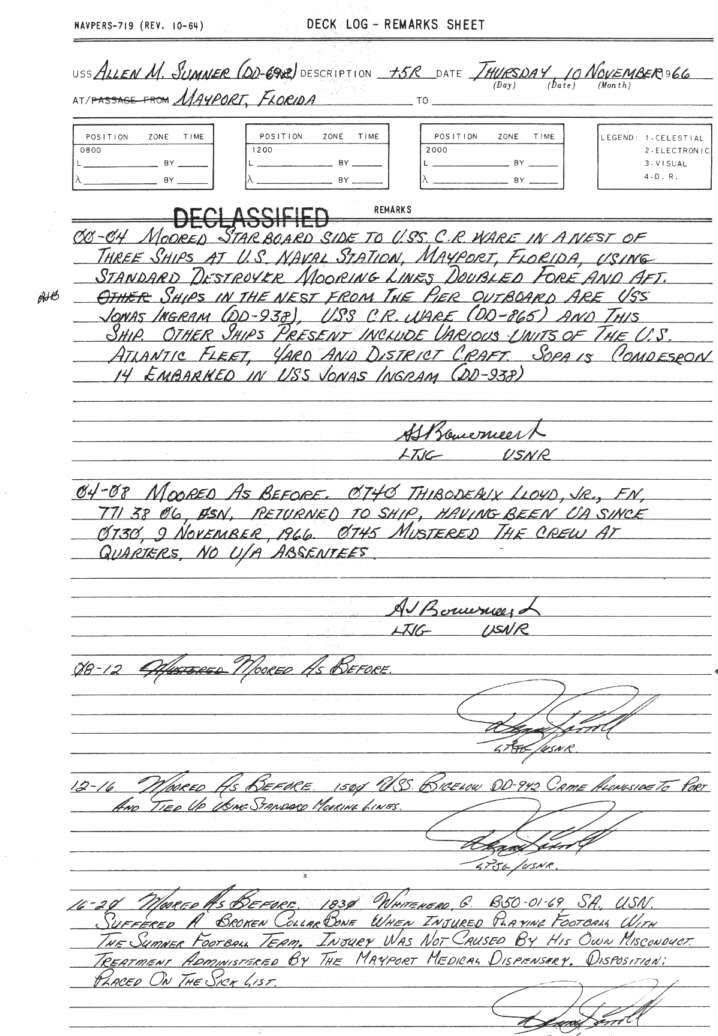 NAVPERS-719 (REV. 10-64) DECK LOG - REMARKS SHEET
USS ALLEN M. SUMNER (DD-692) DESCRIPTION +5R DATE THURSDAY, 10 NOVEMBER 1966
(Day) (Date) (Month)
AT/PASSAGE FROM MAYPORT, FLORIDA TO
POSITION ZONE TIME POSITION ZONE TIME POSITION ZONE TIME LEGEND: 1-CELESTIAL
0800 1200 2000 2-ELECTRONIC
L BY L BY L BY 3-VISUAL
λ BY λ BY λ BY 4-D. R.
DECLASSIFIED REMARKS
00-04 MOORED STARBOARD SIDE TO U.S.S. C.R. WARE IN A NEST OF
THREE SHIPS AT U.S. NAVAL STATION, MAYPORT, FLORIDA, USING
STANDARD DESTROYER MOORING LINES DOUBLED FORE AND AFT.
OTHER SHIPS IN THE NEST FROM THE PIER OUTBOARD ARE USS
JONAS INGRAM (DD-938), USS C.R. WARE (DD-865) AND THIS
SHIP. OTHER SHIPS PRESENT INCLUDE VARIOUS UNITS OF THE U.S.
ATLANTIC FLEET, YARD AND DISTRICT CRAFT. SOPA IS COMDESRON
14 EMBARKED IN USS JONAS INGRAM (DD-938)
LTJG USNR
04-08 MOORED AS BEFORE. 0740 THIBODEAUX LLOYD, JR., FN,
771 38 06, USN, RETURNED TO SHIP, HAVING BEEN UA SINCE
0730, 9 NOVEMBER, 1966. 0745 MUSTERED THE CREW AT
QUARTERS, NO U/A ABSENTEES
LTJG USNR
08-12 MUSTERED MOORED AS BEFORE.
LTJG/USNR.
12-16 MOORED AS BEFORE. 1504 USS BIGELOW DD-942 CAME ALONGSIDE TO PORT
AND TIED UP USING STANDARD MOORING LINES.
LTJG/USNR.
16-20 MOORED AS BEFORE. 1830 WHITEHEAD, G. B50-01-69, SA, USN.
SUFFERED A BROKEN COLLAR BONE WHEN INJURED PLAYING FOOTBALL WITH
THE SUMNER FOOTBALL TEAM. INJURY WAS NOT CAUSED BY HIS OWN MISCONDUCT.
TREATMENT ADMINISTERED BY THE MAYPORT MEDICAL DISPENSERY. DISPOSITION:
PLACED ON THE SICK LIST.